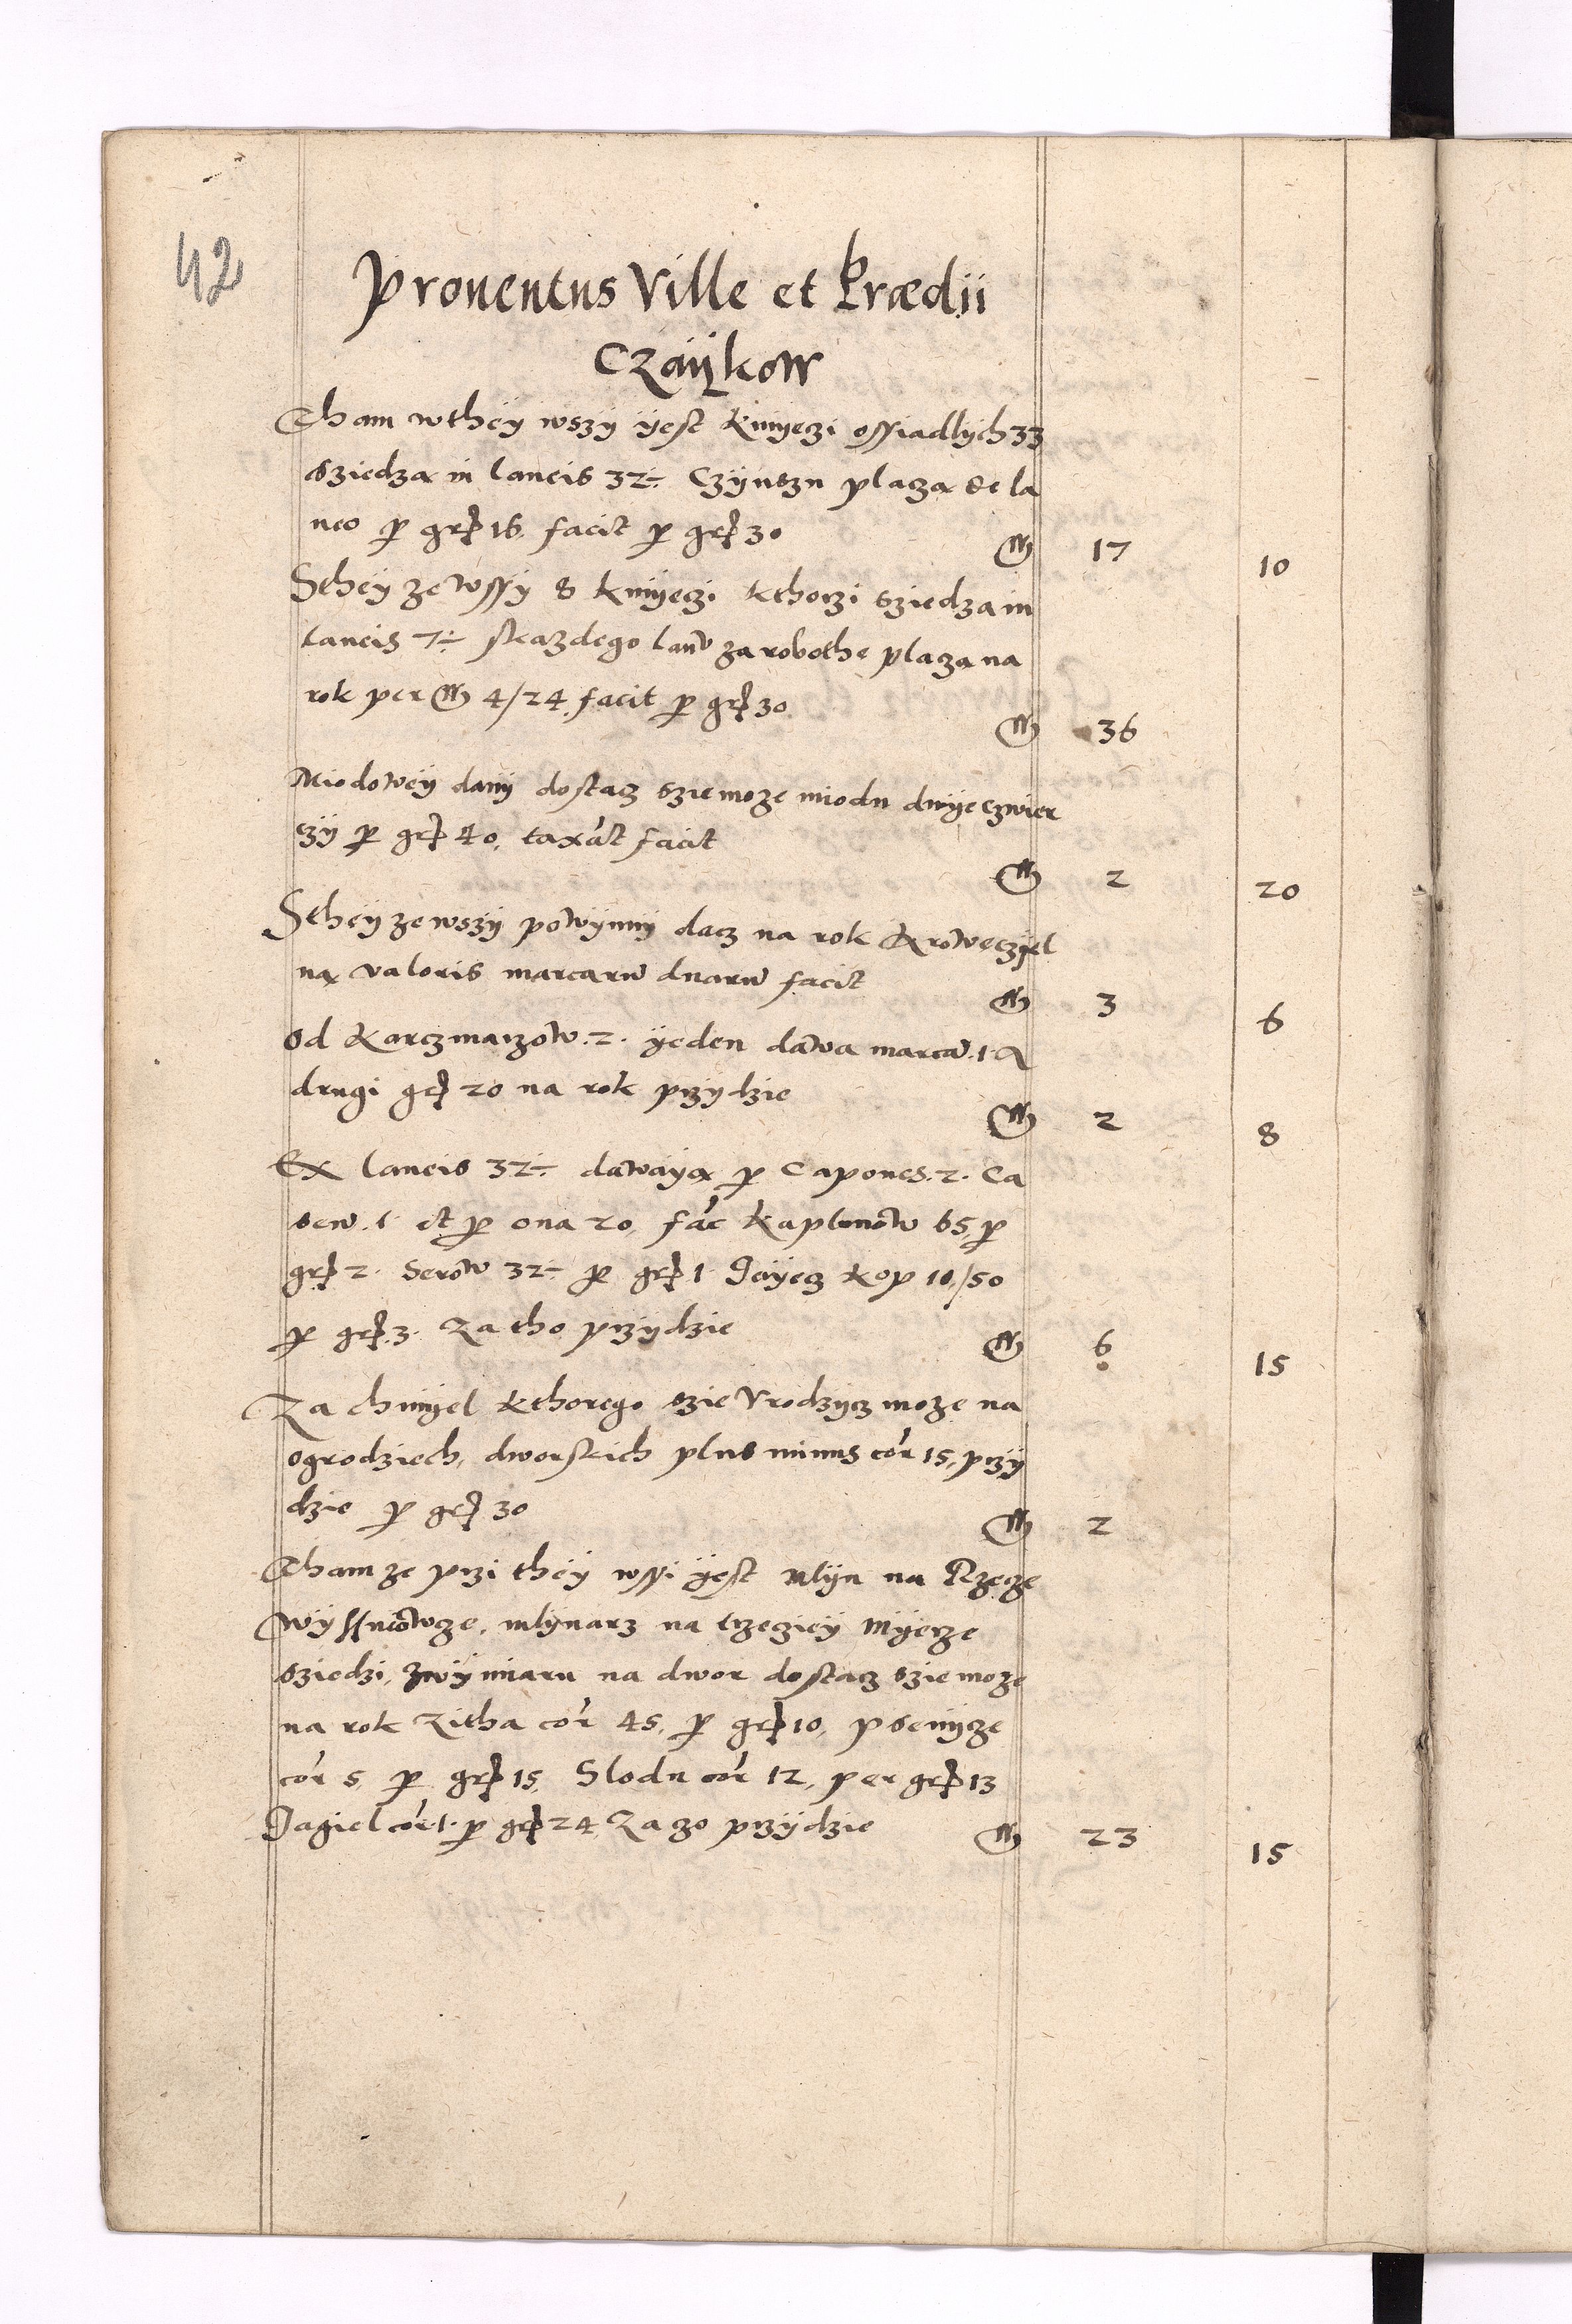 42
Prouentus Ville et Prædii
Czaÿkow
Tham wtheÿ wszÿ ÿest kmÿeczi ossiadlÿch 33
sziedza in laneis 32÷ Czÿnszu placza de la
neo p grꝭ 16. facit p grꝭ 30 M 17 10
Stheÿ ze wssÿ 8 kmÿeczi kthorzi sziedza in
laneis 7÷ skazdego lanu za robothe placza na
rok per M 4/24 facit p grꝭ 30 M 36
Miodoweÿ danÿ dostacz szie moze miodu dwÿe czwier
czÿ p grꝭ 40, taxat facit M 2 20
Stheÿ ze wszÿ powÿnnÿ dacz na rok Krowe czÿel
na valoris marcaru duaru facit M 3 6
Od Karczmarzow .2. ÿeden dawa marca .1. A
drugi grꝭ 20 na rok przÿdzie M 2 8
Ex laneis 32÷ dawaÿa p Capones .2. Ca
seu .1. et p oua 20, fac Kaplunow 65, p
grꝭ 2. Serow 32÷ p grꝭ 1 Jaÿecz kop 10/50
p grꝭ .3. Za tho przÿdzie M 6 15
Za chmÿel kthorego szie Vrodzÿcz moze na
ogrodziech, dworskich plus minus cor 15, przÿ
dzie p grꝭ 30 M 2
Tham ze przi theÿ wssi ÿest mlÿn na Rzecze
mlÿnarz na trzecieÿ mÿerze
sziedzi, zwÿmiaru na dwor dostacz szie moze
na rok Zitha cor 45, p grꝭ 10, psenÿcze
cor 5, p grꝭ 15, Slodu cor 12, per grꝭ 13
Jagiel cor .1. p grꝭ 24, Za zo przÿdzie M 23 15